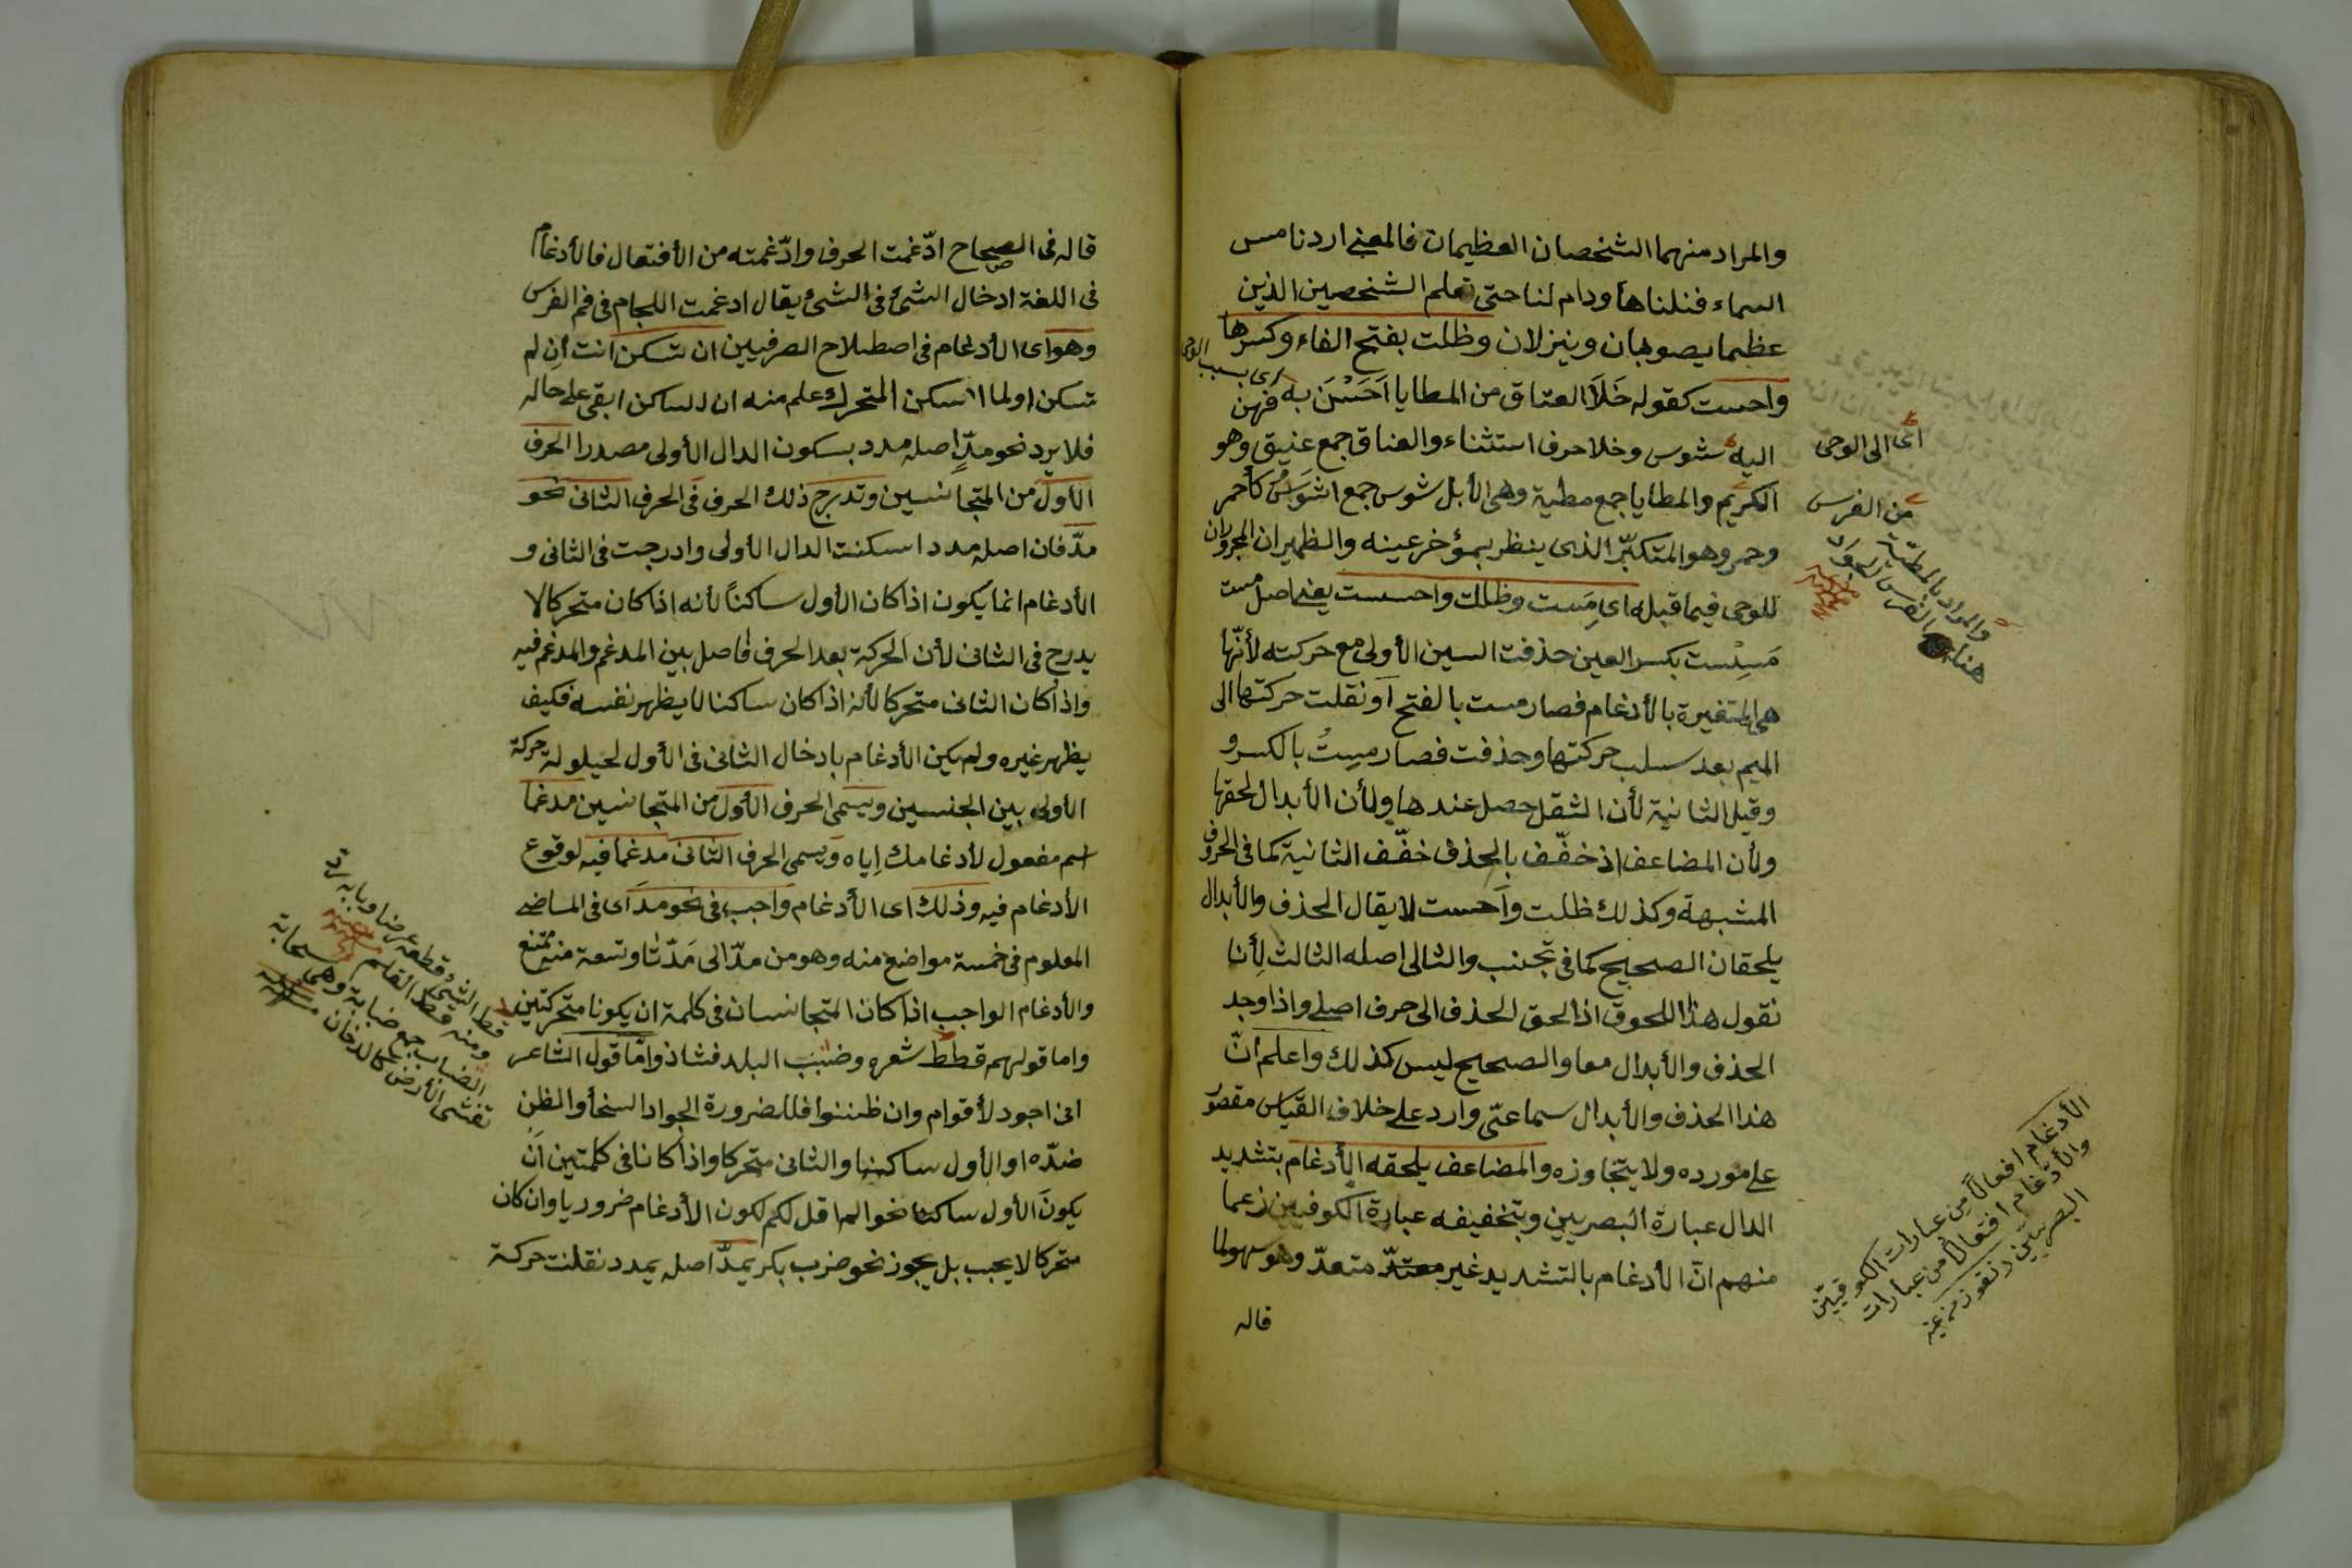 والمراد منهما الشخصان العظيمان فالمعنى اردنا مس
السماء فنلناها ودام لنا حتى تعلم الشخصين الذين
عظيما يصوبان وينزلان وظلت بفتح الفاء وكسرها
واحست كقوله خَلَا العتاق من المطايا اَحَسْنَ به فهن
اى بسبب الوحى
اليه شوس وخلا حرف استثناء والعناق جمع عنيق وهو
الكريم والمطايا جمع مطية وهى الأبل شوس جمع اشوَسُ كأحمر
وحمر وهو المتكبّر الذى ينظر بمؤخر عينه والظهيران المجروران
للوحى فيما قبله اى مِست وظللت واحسست يعنى اصل مست
مَسِسْت بكسر العين حذفت السين الأولى مع حركته لأنّها
هى المتغيرة بالأدغام فصار مست بالفتح او نقلت حركتها الى
الميم بعد سلب حركتها وحذفت فصار مِستُ بالكسر و
وقيل الثانية لأن الثقل حصل عندها ولأن الأبدال لحقها
ولأن المضاعف اذ خفّف بالحذف خفّف الثانية كما فى الحروف
المشبهة وكذلك ظلت وأحست لا يقال الحذف والأبدال
يلحقان الصحيح كما فى تجنب والثالى اصله الثالث لأنا
نقول هذا اللحوق اذا لحق الحذف الى حرف اصلى واذا وجد
الحذف والأبدال معا والصحيح ليس كذلك واعلم انّ
هذا الحذف والأبدال سماعىّ وارد على خلاف القياس مقصور
على مورده ولا يتجاوزه والمضاعف يلحقه الأدغام بتشديد
الدال عبارة البصريين وبتخفيفه عبارة الكوفيين زعما
منهم انّ الأدغام بالتشديد غير معتدّ متعدّ وهو سهو لما
قاله
اى الى الوحى
من الفرس
والمراد بالمطيّة
هنا الفرس الجواد
الأدغام افعالٌ من عبارات الكوفيّين
والأدّغام افتعالٌ من عبارات
البصريين
قاله فى الصحاح ادّغمت الحرف وادّغمته من الأفتعال فالأدغام
فى اللغة ادخال الشئ فى الشئ يقال ادغمت اللجام فى فم الفرس
وهو اى الأدغام فى اصطلاح الصرفيين ان تسكن انت اِن لم
تسكن اولما اسكن المتحرك علم منه ان الساكن ابقى على حاله
فلا يرد نحو مدّ اصله مدد بسكون الدال الأولى مصدرا الحرف
الأول من المتجانسين وتدرج ذلك الحرف فى الحرف الثانى نحو
مدّ فان اصله مدد اسكنت الدال الأولى وادرجت فى الثانى و
الأدغام انما يكون اذا كان الأول ساكناً لأنه اذا كان متحركا لا
يدرج فى الثانى لأن الحركة بعد الحرف فاصل بين المدغم والمدغم فيه
واذا كان الثانى متحركا لأنه اذا كان ساكنا لا يظهر نفسه فكيف
يظهر غيره ولم يكن الأدغام بادخال الثانى فى الأول لحيلولة حركة
الأولى بين الجنسين ويسمى الحرف الأول من المتجانسين مدغما
اسم مفعول لأدغامك إياه ويسمى الحرف الثانى مدغما فيه لوقوع
الأدغام فيه وذلك اى الأدغام واجب فى نحو مدَ اى فى الماضى
المعلوم فى خمسة مواضع منه وهو من مدّ الى مَدّتا وتسعة منه يمتنع
والأدغام الواجب اذا كان المتجانسان فى كلمة ان يكونا متحركتين
واما قولهم قطط شعره وضبَب البلد فشاذ وامّا قول الشاعر
انى اجود لأقوام وان ظننوا فللضرورة الجواد السخأ والظن
ضدّه او الأول ساكنا والثانى متحركا واذا كانا فى كلمتين اَن
يكونَ الأول ساكنا نحو الم اقل لكم لكون الأدغام ضروريا وان كان
متحركا لا يجب بل يجوز نحو ضرب بكر يمدّ اصله يمدد نقلنت حركة
قط الشئ قطعه عرضا وبابه ردّ
ومنه قط القلم
الضباب جمع ضبابة وهى سحابة
تغشى الأرض كالدخان